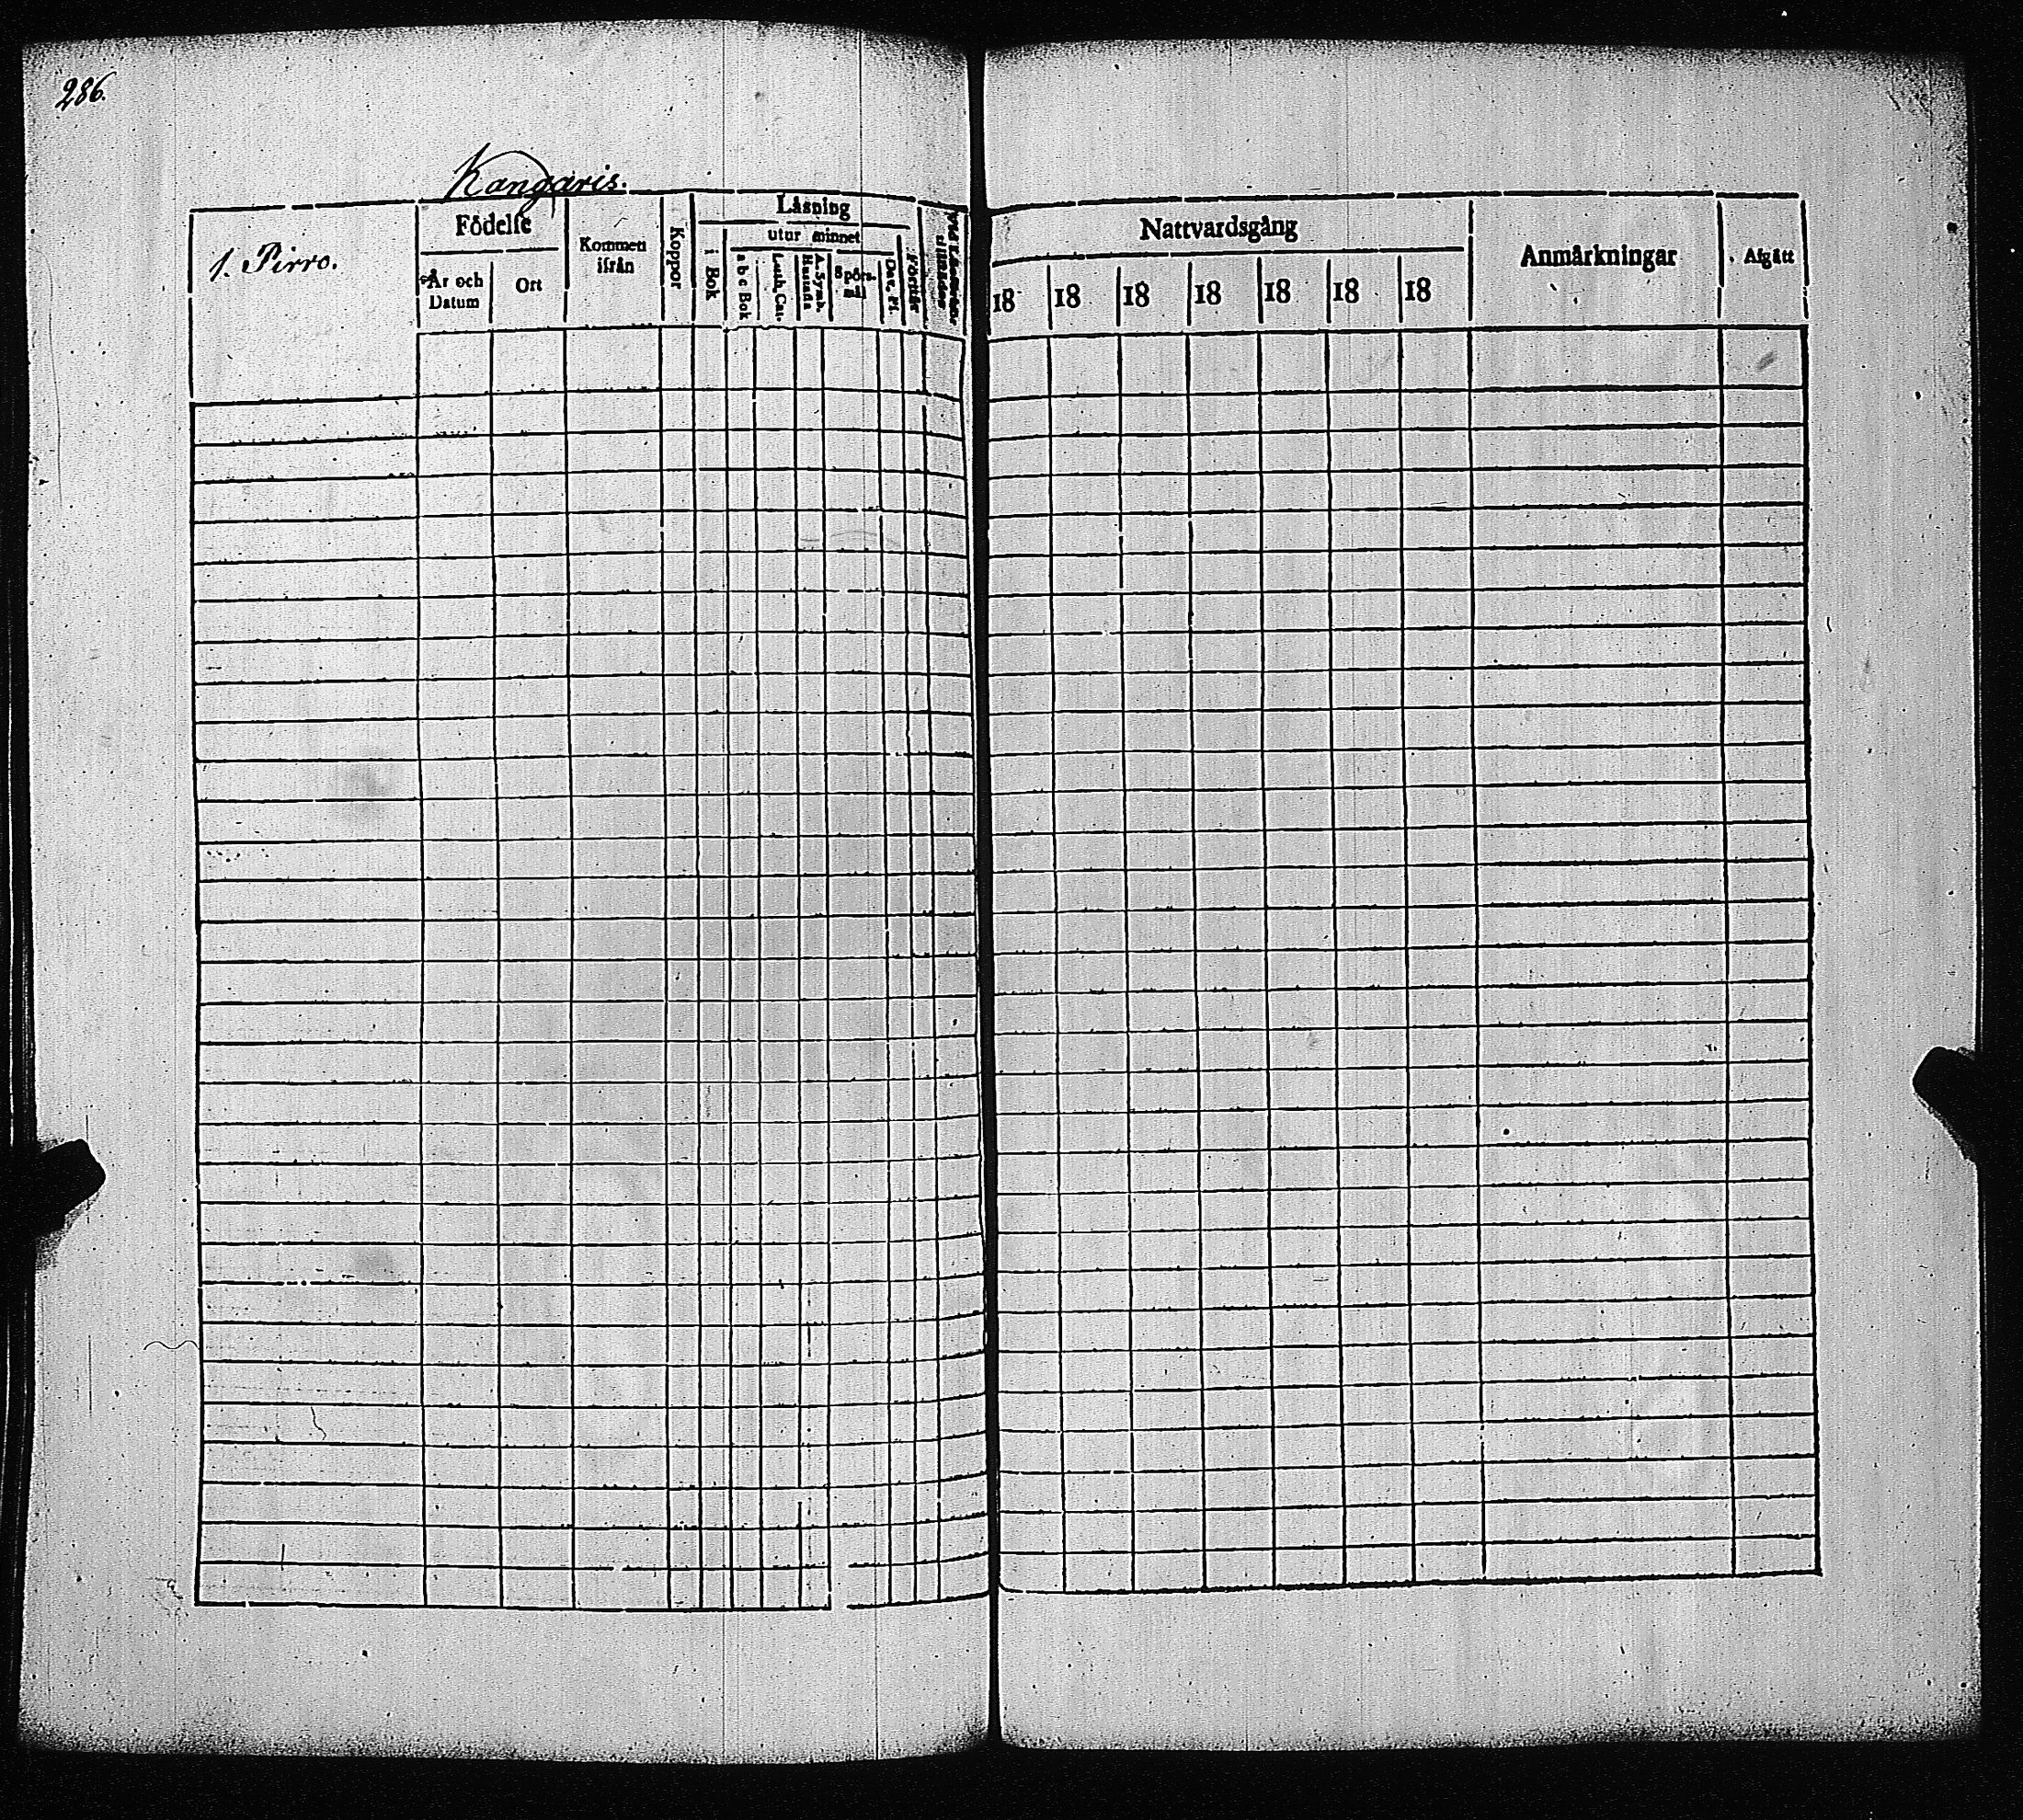 286.
Kangaris.
1. Pirro.
Födelse
År och Datum
Ort
Kommen ifrån
Koppor
Läsning
i Bok
utur minnet
a b c Bok
Luth. Cat.
A. Symb.
Hustafla
Spörs-mål
Dav. Ps.
Förstår
Nattvardsgång
18 18 18 18 18 18 18
Anmärkningar
Afgått